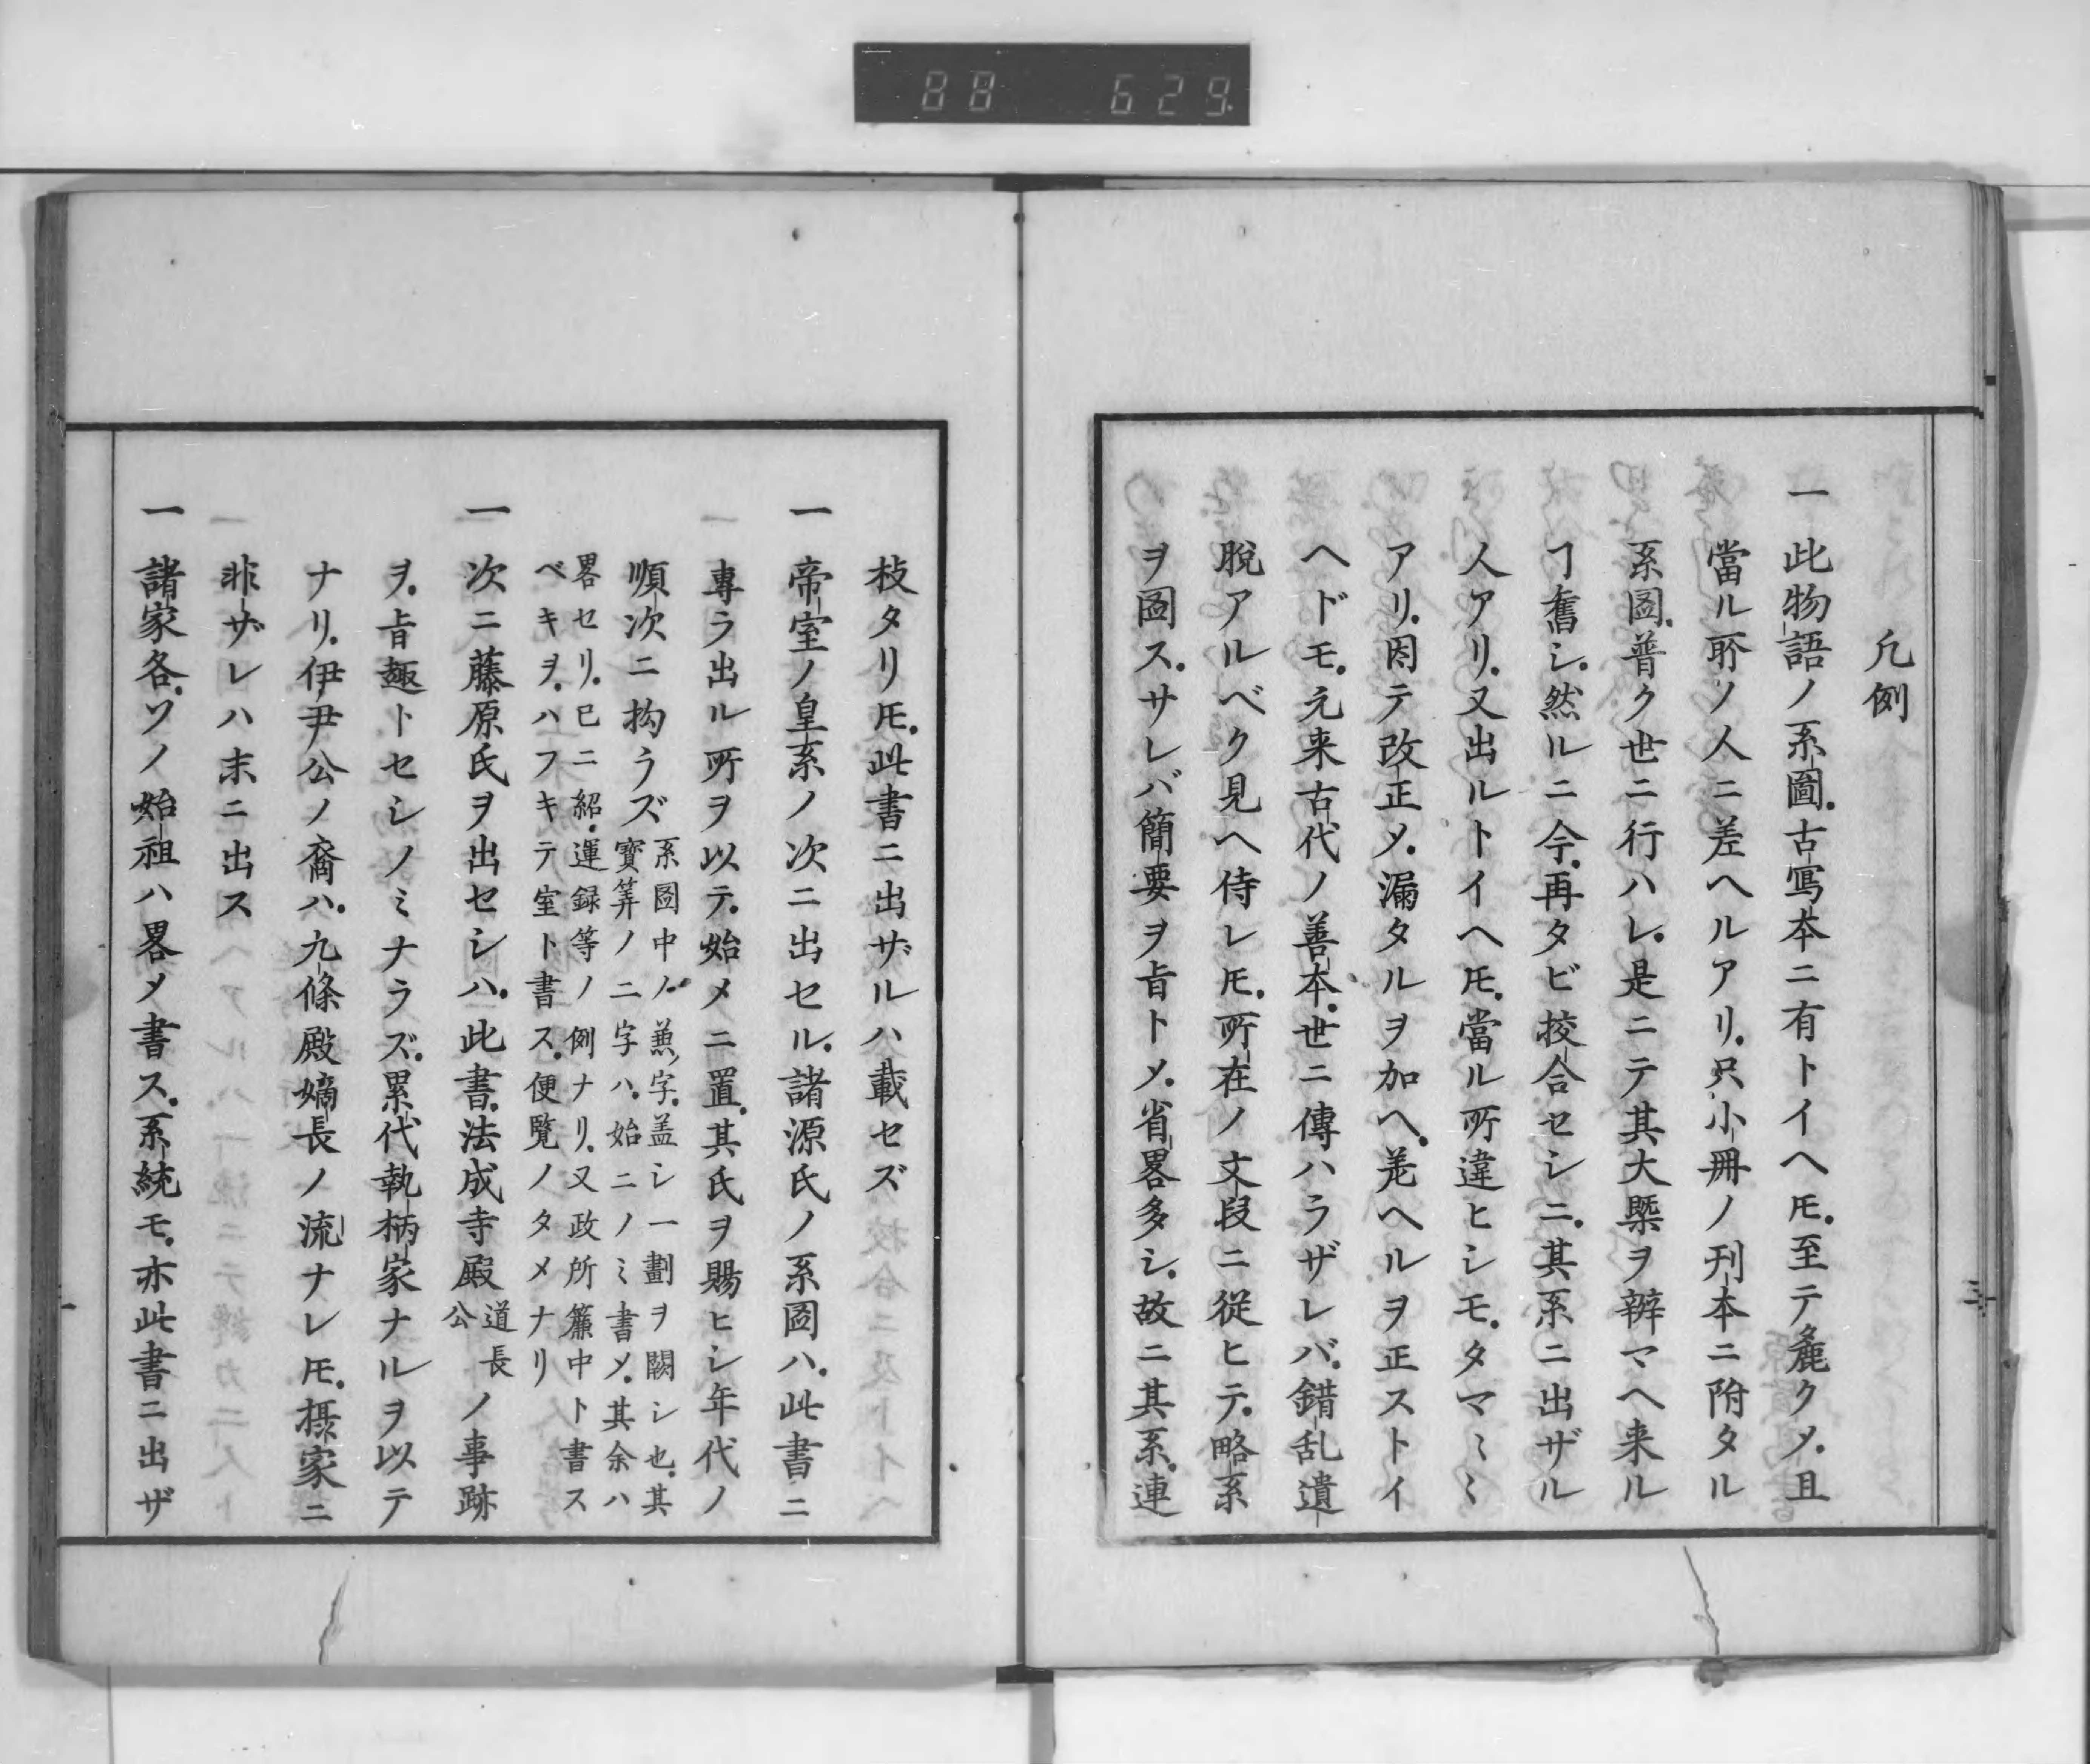 88 629
凡例
一此物語ノ系圖古寫本ニ有トイヘ𪜈至テ麁クメ且
當ル所ノ人ニ差ヘルアリ只小冊ノ刊本ニ附タル
系圖普ク世ニ行ハレ是ニテ其大槩ヲ辨マヘ来ル
ヿ舊シ然ルニ今再タビ挍合セシニ其系ニ出ザル
人アリ又出ルトイヘ𪜈當ル所違ヒシモタマヽミ
アリ因テ改正メ漏タルヲ加ヘ差ヘルヲ正ストイ
ヘドモ元来古代ノ善本世ニ傳ハラザレバ錯乱遺
脱アルベク見ヘ侍レ𪜈所在ノ文段ニ従ヒテ略系
ヲ圖スサレバ簡要ヲ旨トメ省畧多シ故ニ其系連
枝タリ𪜈此書ニ出ザルハ載セズ
一帝室ノ皇系ノ次ニ出セル諸源氏ノ系圖ハ此書ニ
専ラ出ル所ヲ以テ始メニ置其氏ヲ賜ヒシ年代ノ
順次ニ拘ラズ
系圖中ノ兼字盖シ一劃ヲ闕シ也其
寶筭ノ二字ハ始ニノミ書メ其余ハ
畧セリ已ニ紹運録等ノ例ナリ又政所簾中ト書ス
ベキヲハフキテ室ト書ス便覧ノタメナリ
一次ニ藤原氏ヲ出セシハ此書法成寺殿道長公ノ事跡
ヲ旨趣トセシノミナラズ累代執柄家ナルヲ以テ
ナリ伊尹公ノ裔ハ九條殿嫡長ノ流ナレ𪜈摂家ニ
非ザレハ末ニ出ス
一諸家各ソノ始祖ハ畧メ書ス系統モ亦此書ニ出ザ